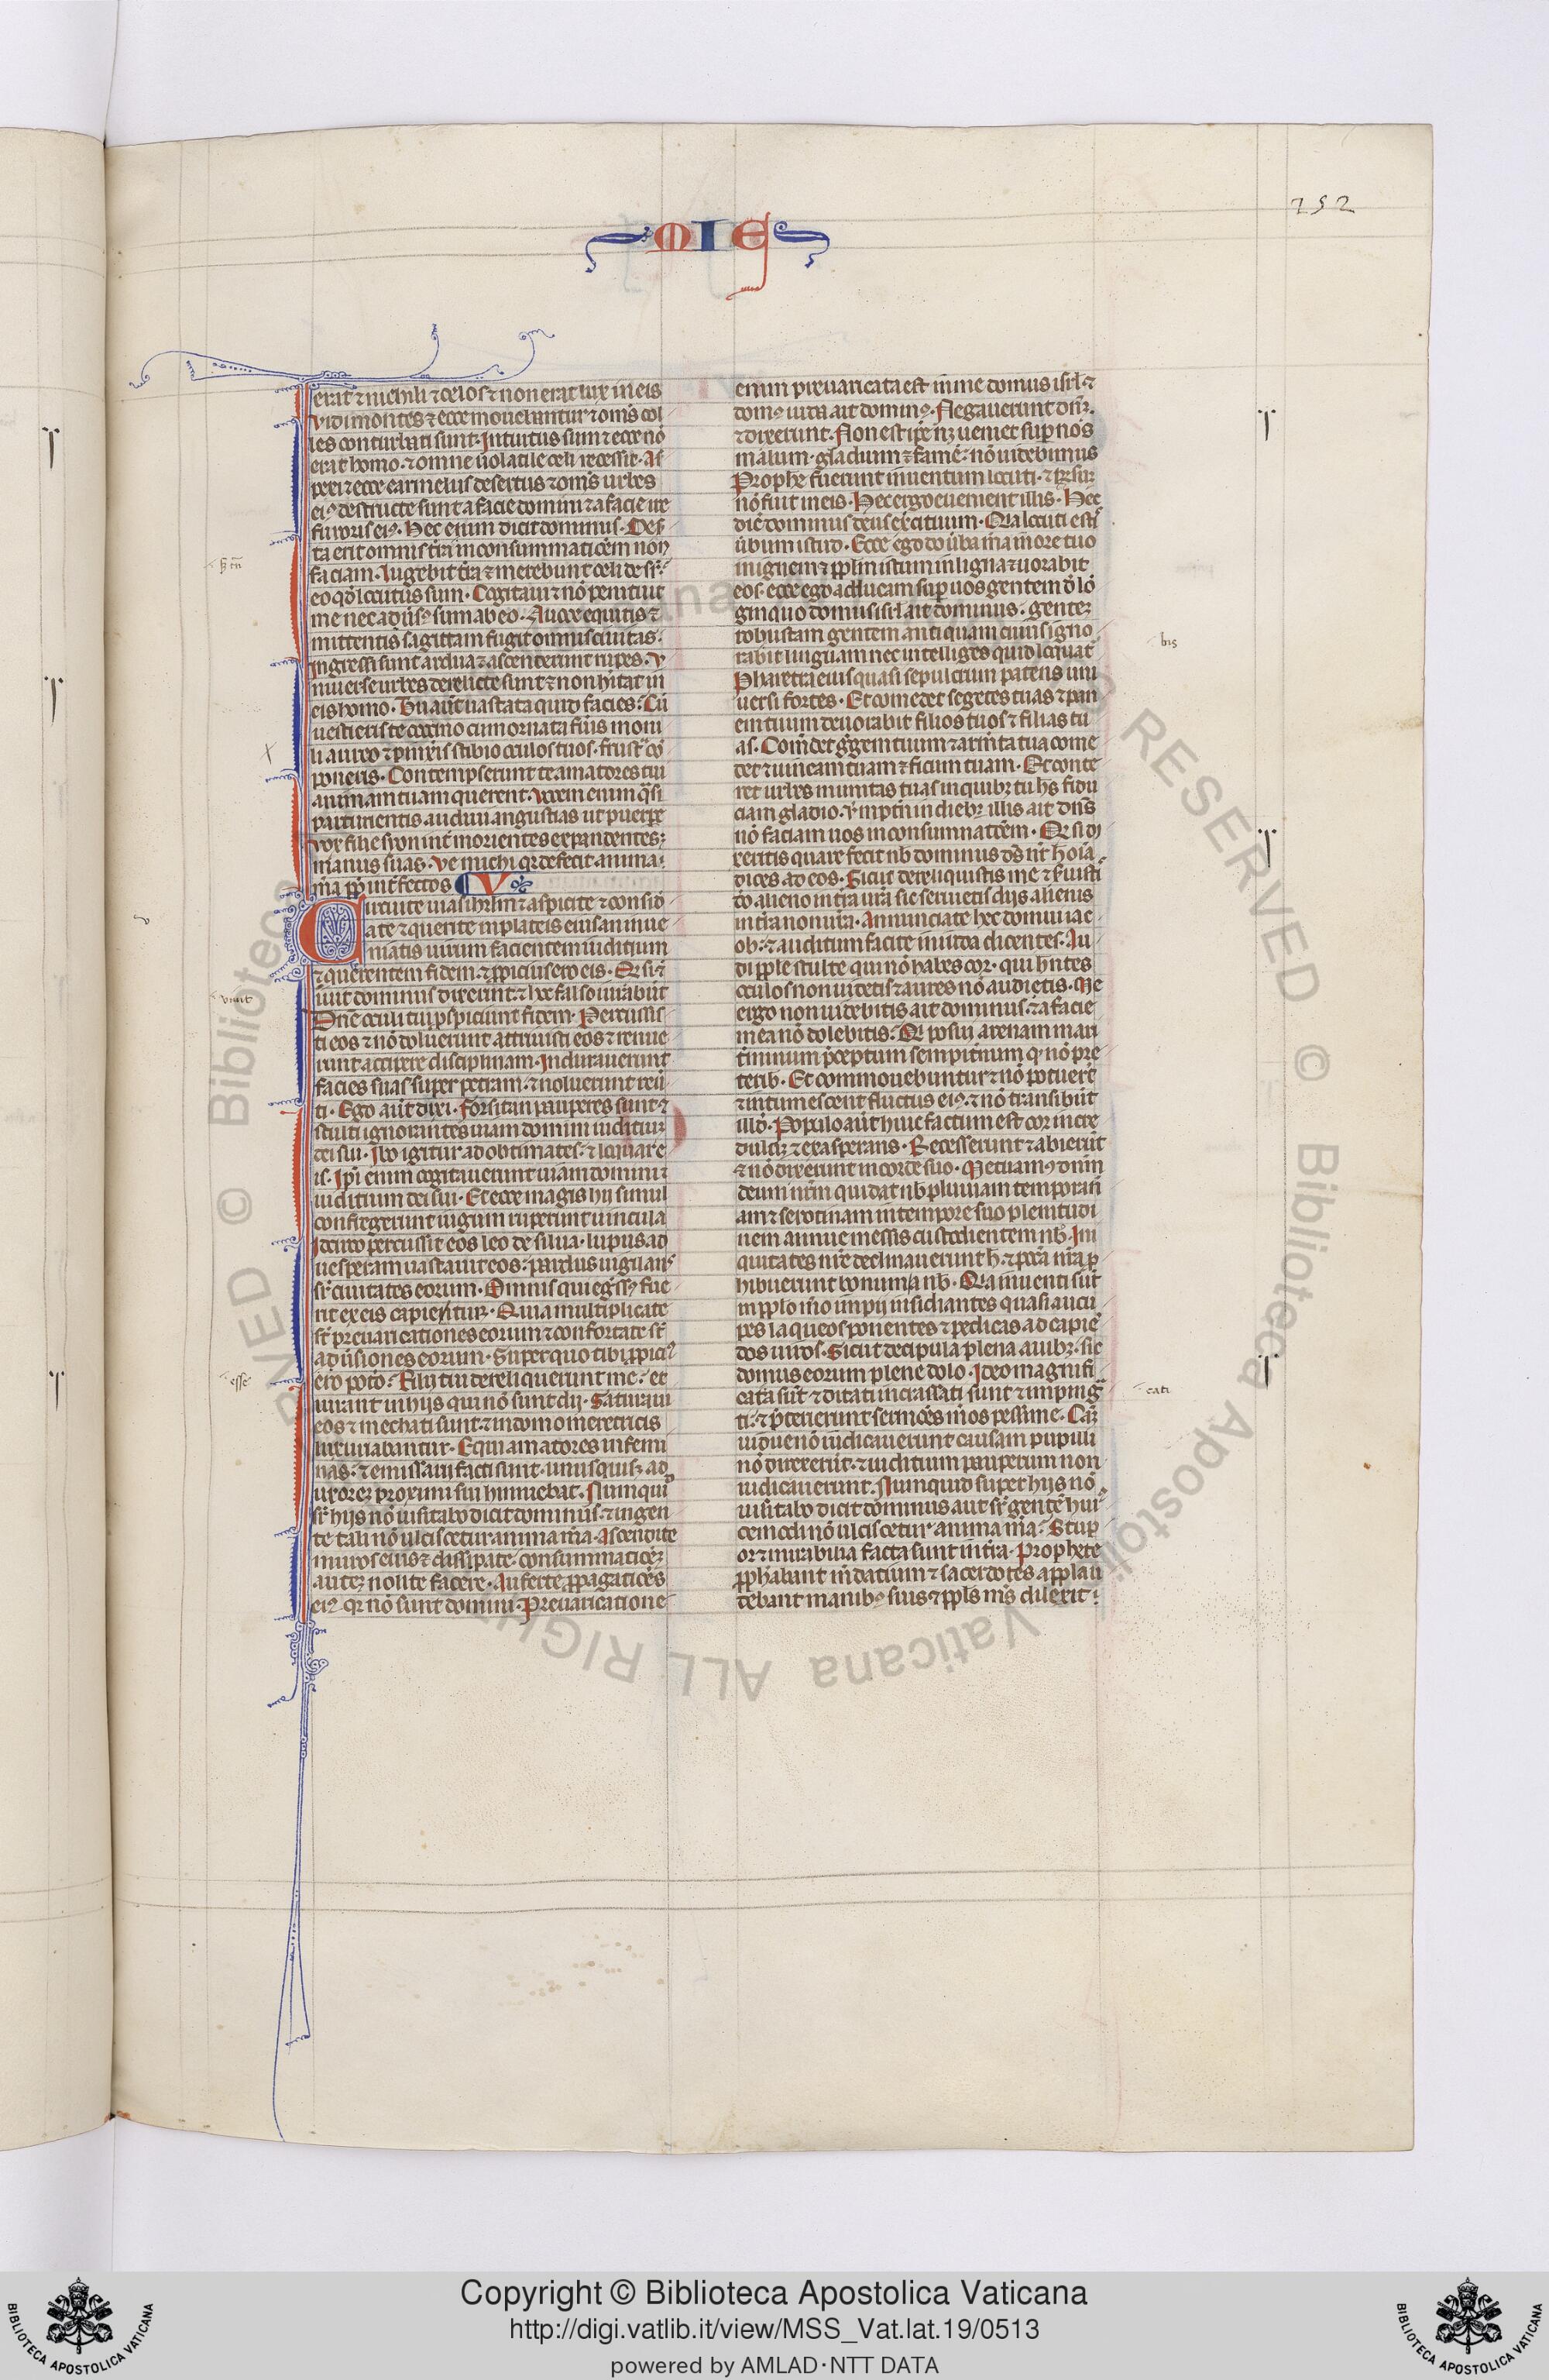 252
MIE
erat ⁊ nichili ⁊ celos ⁊ non erat lux in eis
vidi montes ⁊ ecce mouebantur ⁊ om̄s col
les conturbati sunt. Intuitus sum ⁊ ecce nō
erat homo. ⁊ omne uolatile celi recessit. As
pexi ⁊ ecce carmelus desertus ⁊ om̄s urbes
eiꝰ destructe sunt a facie domini ⁊ a facie ire
furoris eiꝰ. Hec enim dicit dominus. Deser
ta erit omnis t̄ra
faciam. Lugebit t̄ra ⁊ merebunt celi desr̄
eo qđ locutus sum. Cogitaui ⁊ nō penituit
me nec auersꝰ sum ab eo. A uoce equitis ⁊
mittentis sagittam fugit omnis ciuitas.
ingressi sunt ardua ⁊ ascenderunt rupes. v
niuerse urbes derelicte sunt ⁊ non hītat in
eis homo. Tu aūt uastata quid facies. Cū
uestieris te coccino cum ornata fūis moni
li aureo ⁊ pinxeris stibio oculos tuos. frustᵃ cō
poneris. Contempserunt te amatores tui
animam tuam querent. Vocem enim q̄si
parturientis audiui angustias ut puerpe
vox filie syon int̄ morientes expandentesꝫ
manus suas. Ve michi qr defecit anima
mā pp̄ int̄fectos V
Circuite uias ihrl̄m ⁊ aspicite ⁊ considē
ate ⁊ querite in plateis eius an inue
niatis uirum facientem iuditium
⁊ querentem fidem. ⁊ ꝓpicius ero eis. Qr si ⁊
uiuit dominus dixerint. ⁊ hoc falso iurabūt
Dn̄e oculi tui ꝑspiciunt fidem. Percussis
ti eos ⁊ nō doluerunt attriuisti eos ⁊ renue
runt accipere disciplinam. Indurauerunt
facies suas super petram. ⁊ noluerunt reū
ti. Ego aūt dixi. forsitan pauperes sunt ⁊
stulti ignorantes uiam domini iuditiuꝫ
dei sui. Ibo igitur ad obtimates. ⁊ loquar e
is. Ip̄i enim cogitauerunt uiam domini ⁊
iuditium dei sui. Et ecce magis hij simul
confregerunt iugum ruperunt uincula
Idcirco percussit eos leo de silua. lupus ad
uesperam uastauit eos. pardus uigilans
sr̄ ciuitates eorum. Omnis qui eg̃ssꝰ fue
rit ex eis capientur. Quia multiplicate
st̄ preuaricationes eorum ⁊ confortate st̄
aduersiones eorum. Super quo tibi ꝓpici
ero poto. Filij tui dereliquerunt me. et
iurant in hijs qui nō sunt dij. Saturaui
eos ⁊ mechati sunt. ⁊ in domo meretricis
luxuriabantur. Equi amatores in femi
nas. ⁊ emissarij facti sunt. unusquisꝫ ad
uxoreꝫ proximi sui hinniebat. Numqui
sr̄ hijs nō uisitabo dicit dominus. ⁊ in gen
te tali nō ulciscetur anima mā. Ascendite
muros eius ⁊ dissipate. consummationeꝫ
auteꝫ nolite facere. Auferte ꝓpagatiōes
eiꝰ qr nō sunt domini. Preuaricatione
enim preuaricata est in me domus isrl̄ ⁊
domꝰ iuda ait dominꝰ. Negauerunt dn̄ꝫ.
⁊ dixerunt. Non est ip̄e nꝫ ueniet suꝑ nos
malum. gladium ⁊ famē. nō uidebimus
Prophē fuerunt in uentum locuti. ⁊
nō fuit in eis. Hec ergo euenient illis. Hec
dic̄ dominus deus exercituum. Qia locuti estis
ūbum istud. Ecce ego do ūba mā in ore tuo
in ignem ⁊ ppl̄m istum in ligna ⁊ uorabit
eos. ecce ego adducam suꝑ uos gentem đ lō
ginquo domus isrl̄ ait dominus. genteꝫ
robustam gentem antiquam cuius igno
rabit linguam nec intelliges quid loquat̄
Pharetra eius quasi sepulcrum patens uni
uersi fortes. Et comedet segetes tuas ⁊ pan
em tuum deuorabit filios tuos ⁊ filias tu
as. Comedet gregem tuum ⁊ armēta tua come
det ⁊ uineam tuam ⁊ ficum tuam. Et conte
ret urbes munitas tuas in quibꝫ tu hēs fidu
ciam gladio. Verumptn̄ in diebꝫ illis ait dn̄s
nō faciam uos in consummatiōem. Qr si dix
eritis quare fecit nb̄ dominus đs nr̄ hec oīa
dices ad eos. Sicut dereliquistis me ⁊ seruisti
do alieno in t̄ra ur̄a sic seruietis dijs alienis
in t̄ra non ur̄a. Annunciate hec domui iac
ob. ⁊ auditum facite in iuda dicentes. Au
di pple stulte qui nō habes cor. qui hn̄tes
oculos non uidetis ⁊ aures nō audietis. Me
ergo non uidebitis ait dominus. ⁊ a facie
mea nō dolebitis. Qr posui arenam mari
t̄minum p̄ceptum sempit̄num qᵒ nō pre
terib̄. Et commouebuntur ⁊ nō potuerē
⁊ intumescent fluctus eiꝰ. ⁊ nō transibūt
illđ. Populo aūt huic factum est cor incre
dulum ⁊ exasperans. Recesserunt ⁊ abierūt
⁊ nō dixerunt in corde suo. Metuamꝰ dn̄m
deum nr̄m qui dat nb̄ pluuiam temporan̄
am ⁊ serotinam in tempore suo plenitudi
nem annue messis custodientem nb̄. Ini
quitates nr̄e declinauerunt h̄. ⁊ pccā nr̄a ꝓ
hibuerunt bonum a nb̄. Qia inuenti sūt
in pplo mō impij insidiantes quasi aucu
pes laqueos ponentes ⁊ pedicas ad capiē
dos uiros. Sicut decipula plena auibꝫ. sic
domus eorum plene dolo. Ideo magnifi
cata sūt ⁊ ditati incrassati sunt ⁊ impinḡ
ti. ⁊ p̄terierunt sermōes mōs pessime. Cāꝫ
uidue nō iudicauerunt causam pupilli
nō direxerūt. ⁊ iuditium pauperum non
iudicauerunt. Numquid super hijs nō
uisitabo dicit dominus aut sr̄ gentē hui
cemodi nō ulciscetur anima mā. Stup
or ⁊ mirabilia facta sunt in t̄ra. Prophete
ꝓphabant m̄datium ⁊ sacerdotes applau
debant manibꝰ suis ⁊ ppl̄s ms̄ dilexit.
viuit
esse
bis
cati
Copyright © Biblioteca Apostolica Vaticana
http://digi.vatlib.it/view/MSS_Vat.lat.19/0513
powered by AMLAD·NTT DATA
BIBLIOTECA APOSTOLICA VATICANA
BIBLIOTECA APOSTOLICA VATICANA
© Biblioteca Apostolica Vaticana ALL RIGHTS RESERVED